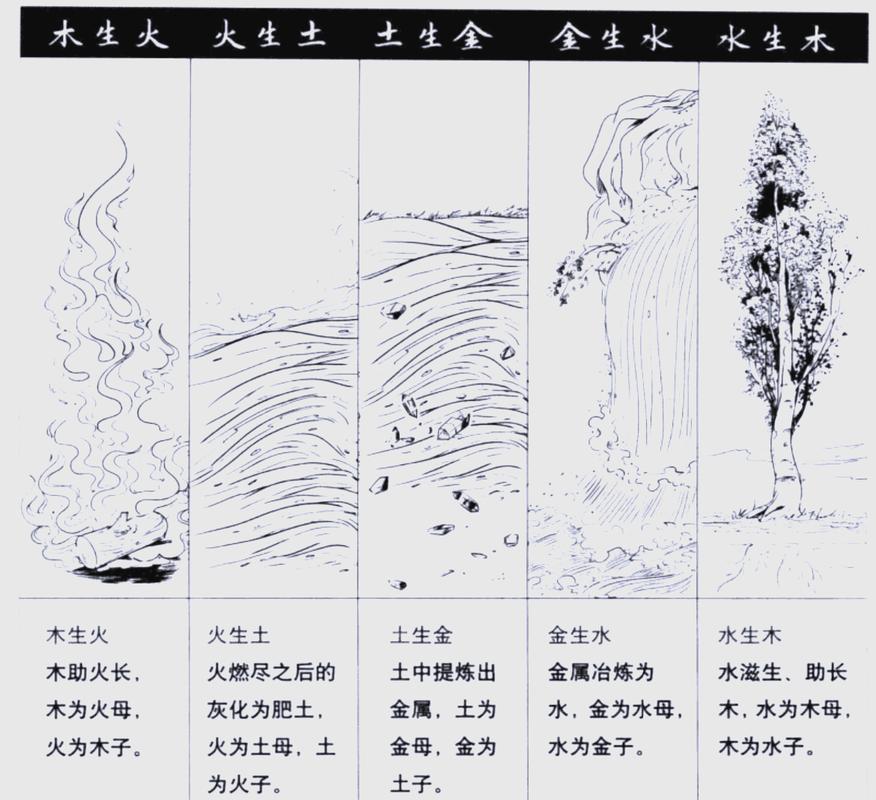 木生火
火生土
土生金
金生水
水生木
木生火
木助火长，
木为火母，
火为木子。
火生土
火燃尽之后的
灰化为肥土，
火为土母，土
为火子。
土生金
土中提炼出
金属，土为
金母，金为
土子。
金生水
金属冶炼为
水，金为水母，
水为金子。
水生木
水滋生、助长
木，水为木母，
木为水子。